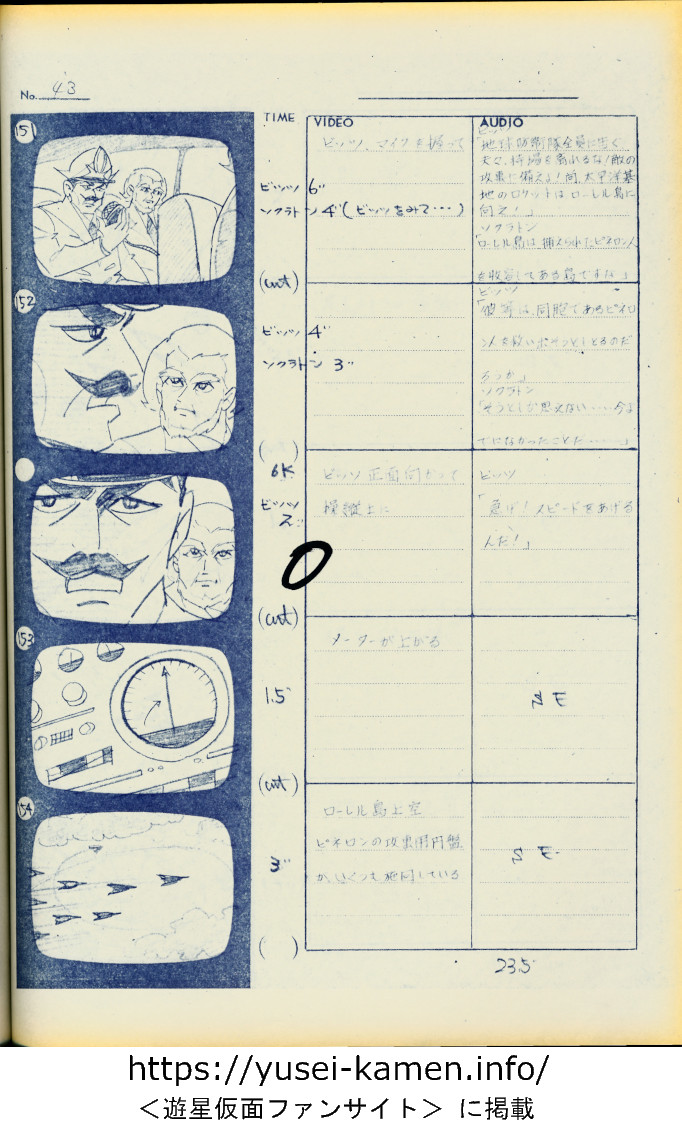 No. 43
TIME VIDEO AUDIO
151
ビッツ、マイクを握って
ビッツ 6"
ソクラトン 4"(ビッツをみて・・・)
ビッツ
「地球防衛隊全員に告ぐ
夫々、持場を離れるな!敵の
攻撃に備えろ!尚、太平洋基
地のロケットはローレル島に
向え!」
ソクラトン
「ローレル島は捕えられたピネロン人
を収容してある島ですな」
(cut)
152
ビッツ 4"
ソクラトン 3"
ビッツ
「彼等は、同胞であるピネロ
ン人を救い
ソクラトン
「そうとしか思えない・・・・・今ま
でになかったことだ・・・・・・」
6K
ビッツ
2"
ビッツ 正面向かって
操縦士に
ビッツ
「急げ!スピードをあげる
んだ!」
(cut)
153
1.5"
メーターが上がる
S E
(cut)
154
3"
ローレル島上空
ピネロンの攻撃用円盤
が、いくつも旋回している
S E
( )
23.5
https://yusei-kamen.info/
<遊星仮面ファンサイト> に掲載